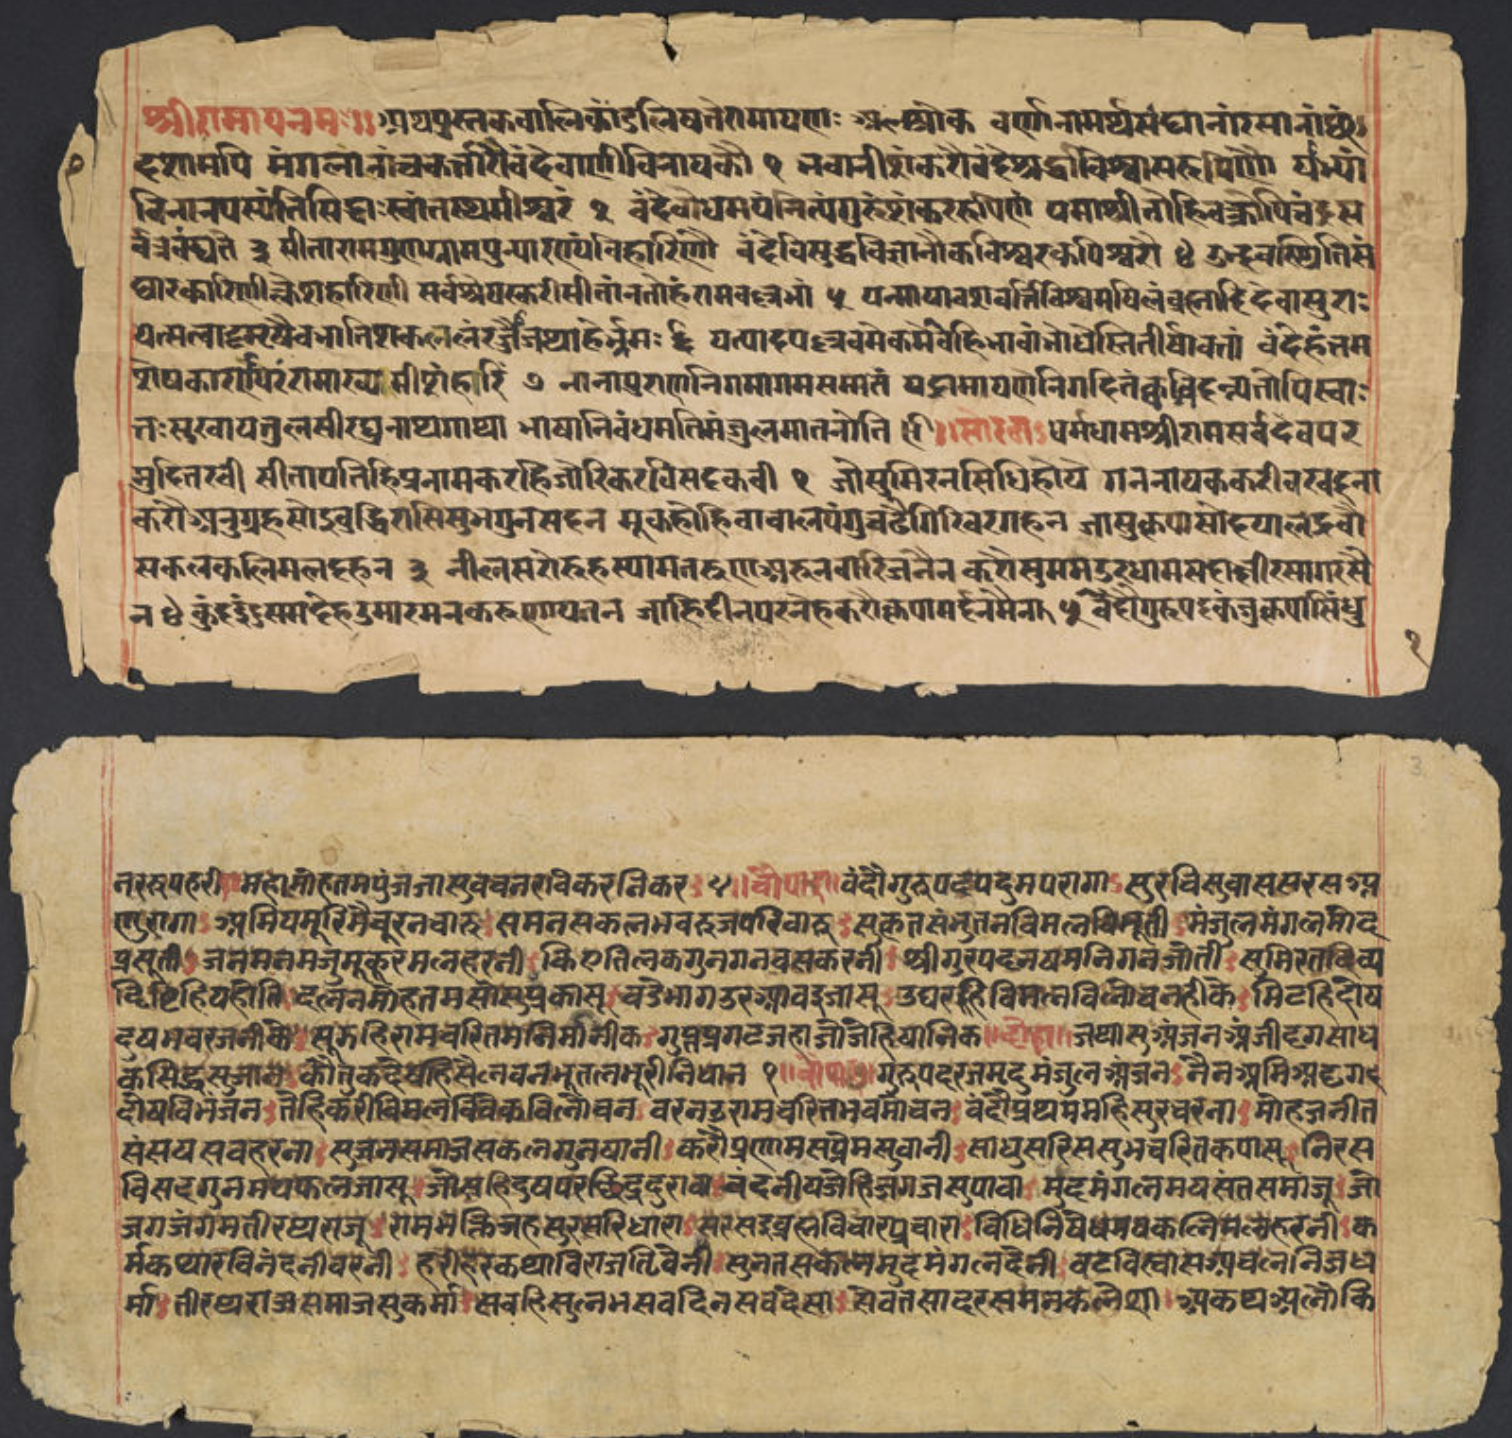 श्रीरामायनमः॥ अथपुस्तकबालिकांडलिषतेरामायणः अलश्लोक वर्णानामर्थसंघानांरसानांछं
दशामपि मंगलानांचकर्त्तारौवंदेवाणीविनायकौ १ भवानीशंकरौवंदेश्रद्धाविश्वासरूपिणौ याभ्यां
विनानपस्यंतिसिद्धाःस्वांतस्थमीश्वरं २ वंदेबोधमयंनित्यंगुरुंशंकररूपिणं यमाश्रीतोहिवक्रोपिचंद्रस
र्वत्रवंद्यते ३ सीतारामगुणग्रामपुन्यारण्यंविहारिणौ वंदेविसुद्धविज्ञानौकविश्वरकपिश्वरौ ४ उद्भवस्थितिसं
घारकारिणीक्लेशहारिणी सर्वश्रेयस्करीसीतांनतोहंरामवल्लभां ५ यन्मायावशवर्त्तिविश्वमषिलंब्रह्मादिदेवासुराः
यत्सत्वादमृषैवभातिशकललंरर्ज्जौजथाहेर्भ्रमः ६ यत्पादपल्लवमेकमेवहिभावांभोधेस्तितीर्षावतां वंदेहंतम
शेषकारणपिरंरामाख्यमीशंहरिं ७ नानापुराणनिगमागमसमातं यद्रामायणेनिगदितंक्वचिदन्यतोपिस्वाः
तःसुखायतुलसीरघुनाथगाथा भाषानिबंधमतिमंजुलमातनोति ॥ सोरठा धर्मधामश्रीरामसर्वदेवपर
मुदितरवी सीतापतिहिप्रनामकरहिजोरिकरविसदकवी १ जोसुमिरनसिधिहोय गननायककरीवरवदना
करौअनुग्रहसोइबुद्धिरासिसुभगुनसदन मूकहोहिवाचालपंगुचढैगिरिवरगहन जासुकृपासोदयालद्रवौ
सकलकलिमलदहन ३ नीलसरोरुहस्यामतरुणअरुनवारिजनैन करौसुममउरधामसदाक्षीरसागरसै
न ४ कुंदइंदुसमदेहउमारमनकरुणायतन जाहिदीनपरनेहकरौकृपामर्दनमैन ५ वंदौगुरुपदकंजकृपासिंधु
नररूपहरी महामोहतमपुंजजासुवचनरविकरनिकर ५ ॥चौपाई॥ वंदौगुरुपदपदुमपरागा सुरुचिसुवाससरसअ
णुरागा अमियमूरिमैचूरनचारु समनसकलभवरुजपरिवारु सुकृतसंभुतनविमलविभूती मंजुलमंगलमोद
प्रसूती जनमनमंजुमुकुरमलहरनी किएतिलकगुनगनवसकरनी श्रीगुरपदनषमनिगनजोती सुमिरतदिव्य
द्रिष्टिहियहोति दलनमोहतमसोसुप्रकासू बडेभागउरआवइजासू उघरहिविमलविलोचनहीके मिटहिदोष
दुषभवरजनीके सूझहिरामचरितमनिमानीक गुप्तप्रगटजहाजोजेहिषानिक ॥दोहा॥ जथासुअंजनअंजीदृगसाध
कसिद्धसुजान कौतुकदेषहिसैलवनभूतलभूरीनिधान १ ॥चौपाई॥ गुरुपदरजमृदुमंजुलअंजन नैनअमिअदृग
दोषविभंजन तेहिकरीविमलविवेकविलोचन वरनउरामचरितभवमोचन वंदौप्रथममहिसुरचरना मोहजनीत
संसयसबहरना सुजनसमाजसकलगुनषानी करौप्रणामसप्रेमसुवानी साधुसरिससुभचरितकपासू निरस
विसदगुनमयफलजासू जोसहिदुषपरछिद्रदुरावा वंदनीयजेहिजगजसुपावा मुदमंगलमयसंतसमाजू जो
जगजंगमतीरथराजू रामभक्तिजहसुरसरिधारा सरसइब्रह्मविचारप्रचारा विधिनिषेधमयकलिमलहरनी क
र्मकथारविनंदनीवरनी हरीहरकथाविराजतिवेनी सुनतसकलमुदमंगलदेनी वटविस्वासअचलनिजध
र्मा तीरथराजसमाजसुकर्मा सबहिसुलभसबदिनसबदेसा सेवतसादरसमनकलेशा अकथअलौकि